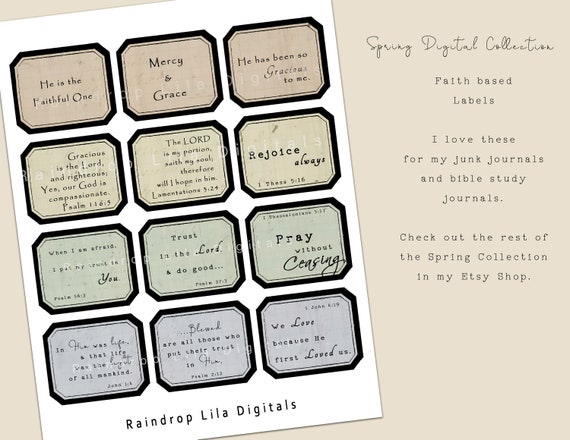 He is the
Faithful One
Mercy
&
Grace
He has been so
Gracious
to me.
Gracious
is the Lord,
and righteous;
Yes, our God is
compassionate.
Psalm 116:5
The LORD
is my portion,
saith my soul;
therefore
will I hope in him.
Lamentations 3:24
Rejoice
always
1 Thess 5:16
When I am afraid,
I put my trust in
You.
Psalm 56:3
Trust
in the Lord,
& do good...
Psalm 37:3
1 Thessalonians 5:17
Pray
without
Ceasing
In Him was life,
& that life
was the light
of all mankind.
John 1:4
....Blessed
are all those who
put their trust
in Him.
Psalm 2:12
1 John 4:19
We Love
because He
first Loved us.
Raindrop Lila Digitals
Spring Digital Collection
Faith based
Labels
I love these
for my junk journals
and bible study
journals.
Check out the rest of
the Spring Collection
in my Etsy Shop.